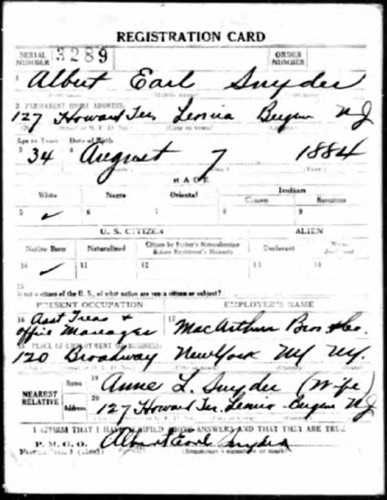 REGISTRATION CARD
SERIAL NUMBER 3289 ORDER NUMBER
1 Albert Earl Snyder
2 PERMANENT HOME ADDRESS:
127 Howard Ter. Leonia Bergen NJ
Age in Years Date of Birth
3 34 4 August 7 1884
RACE
White Negro Oriental Indian
Citizen Noncitizen
5 ✓ 6 7 8 9
U. S. CITIZEN ALIEN
Native Born Naturalized Citizen by Father's Naturalization Before Registrant's Majority Declarant Non-Declarant
10 ✓ 11 12 13 14
15 If not a citizen of the U. S., of what nation are you a citizen or subject?
PRESENT OCCUPATION EMPLOYER'S NAME
16 Asst Treas & Office Manager 17 MacArthur Bros Co.
18 PLACE OF EMPLOYMENT OR BUSINESS:
120 Broadway New York NY NY.
NEAREST RELATIVE Name 19 Anne L. Snyder (Wife)
Address 20 127 Howard Ter. Leonia Bergen NJ
I AFFIRM THAT I HAVE VERIFIED ABOVE ANSWERS AND THAT THEY ARE TRUE
P. M. G. O. Albert Earl Snyder
Form No. 1 (Red) (Registrant's signature or mark)